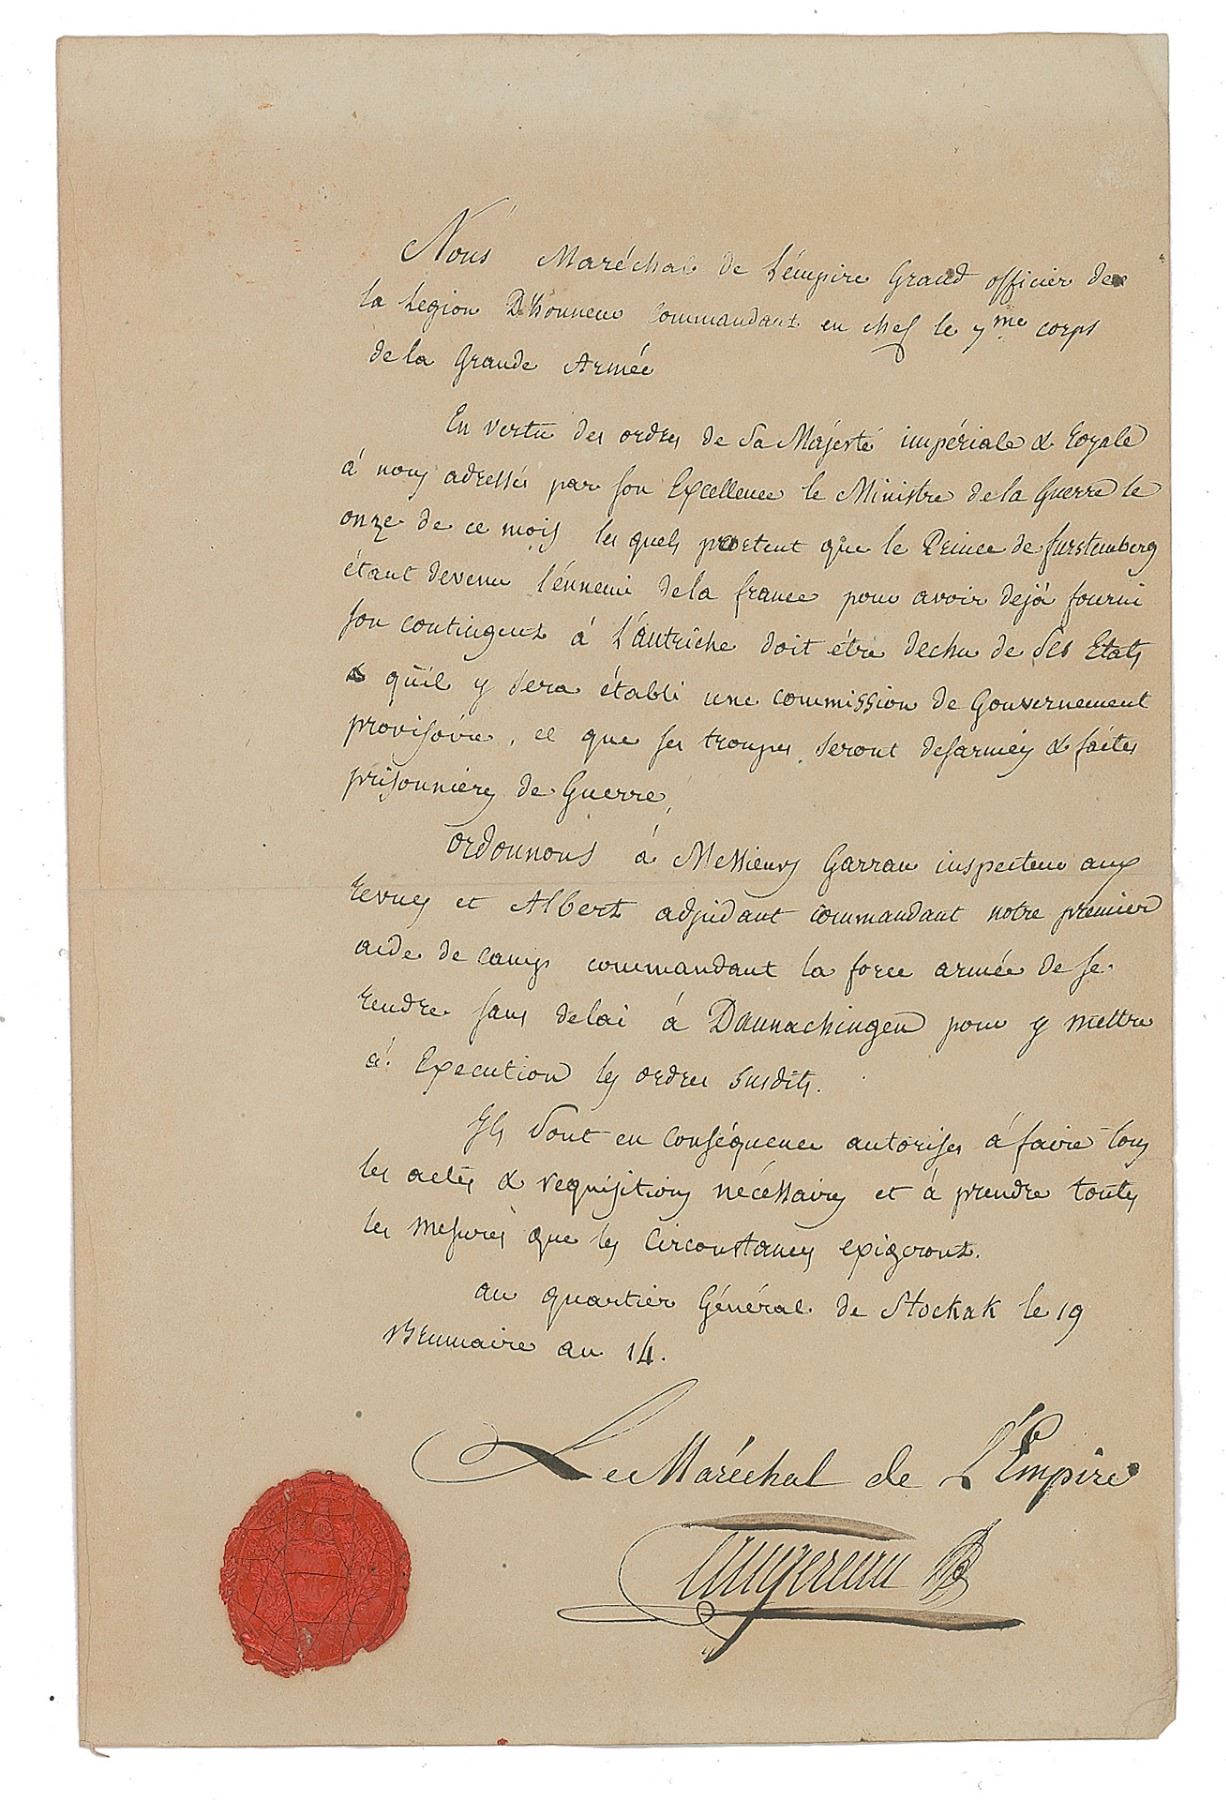 Nous Maréchal de L'émpire Grand officier de
la Legion D'honneur Commandant en chef le 7me corps
de la Grande Armée
En vertu des ordres de Sa Majesté impériale & Royale
à nous adressés par son Excellence le Ministre de la Guerre le
onze de ce mois les quels portent que le Prince de furstemberg
étant devenu l'énnemi de la france pour avoir dejà fourni
son contingent à L'autriche doit étre dechu de ses Etats
& qu'il y sera établi une commission de Gouvernement
provisoire, et que ses troupes seront desarmées & faites
prisonnieres de Guerre,
Ordonnons à Messieurs Garrau inspecteur aux
revues et Albert adjudant commandant notre premier
aide de camp commandant la force armée de se
rendre sans delai à Dannachingen pour y mettre
à Execution les ordres susdits.
Ils sont en conséquence autorisés à faire tous
les actes & requisitions nécessaires et à prendre toutes
les mesures que les Circonstances exigeront.
au quartier Général de Stockak le 19
Brumaire an 14.
Le Maréchal de L'Empire
Augereau